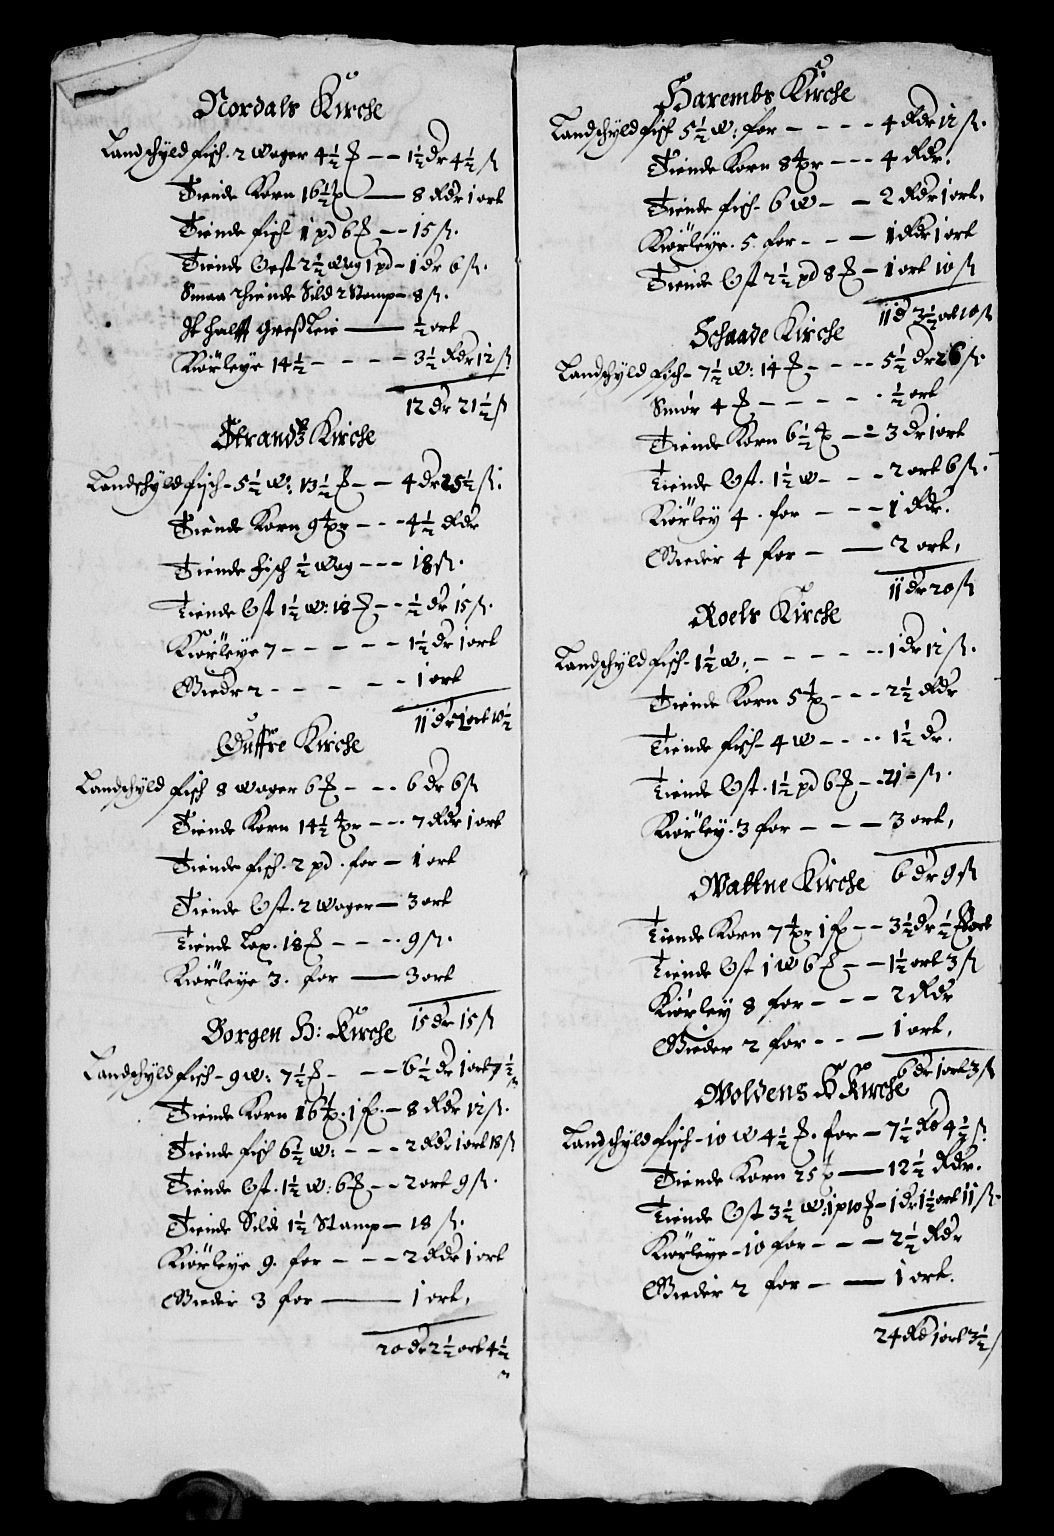 Nordals Kirche
Landschÿld fisch. 2 Woger 4½ ℔ — 1½ dr 4½ ß
Tiende Korn 16½ tp — 8 Rdr 1 ort
Tiende fisch 1 pd 6 ℔ — 15 ß.
Tiende Oest 2½ Wog 1 pd — 1 dr 6 ß.
Smaa Thiende Sild 2 Stamp — 8 ß.
St halff Greß Leie — ½ ort
Kiörleÿe 14½ — 3½ Rdr 12 ß
12 dr 21½ ß
Strands Kirche
Landschÿld fisch – 5½ W: 13½ ℔ — 4 dr 25½ ß.
Tiende Korn 9 tpr — 4½ Rdr
Tiende fisch ½ Wog — 18 ß.
Tiende Ost 1½ W: 18 ℔ — ½ dr 15 ß.
Kiörleÿe 7 — 1½ dr 1 ort
Gieder 2 — 1 ort
11 dr 1 ort 10½
Guffre Kirche
Landschÿld fisch 8 Woger 6 ℔ — 6 dr 6 ß
Tiende Korn 14½ tpr — 7 Rdr 1 ort
Tiende fisch. 2 pd. for — 1 ort
Tiende Ost. 2 Woger — 3 ort
Tiende Lax. 18 ℔ — 9 ß.
Kiörleÿe 3. for — 3 ort
15 dr 15 ß
Borgen H: Kirche
Landschÿld fisch – 9 W: 7½ ℔ — 6½ dr 1 ort 7½ ß
Tiende Korn 16 tp. 1 f — 8 Rdr 12 ß.
Tiende fisch 6½ W: — 2 Rdr 1 ort 18 ß
Tiende Ost. 1½ W: 6 ℔ — 2 ort 9 ß.
Tiende Sild 1½ Stamp — 18 ß.
Kiörleÿe 9. for — 2 Rdr 1 ort
Gieder 3 for — 1 ort.
20 dr 2½ ort 4½ ß
Harembs Kirche
Landschÿld fisch 5½ W: for — 4 Rdr 12 ß.
Tiende Korn 8 tpr — 4 Rdr.
Tiende fisch – 6 W — 2 Rdr 1 ort.
Kiörleÿe. 5. for — 1 Rdr 1 ort
Tiende Ost 2½ pd 8 ℔ — 1 ort 10 ß
11 d 2½ ort 10 ß
Schaade Kirche
Landschÿld fisch – 7½ W: 14 ℔ — 5½ dr 26 ß.
Smör 4 ℔ — ½ ort
Tiende Korn 6½ tp — 3 dr 1 ort
Tiende Ost. 1½ W — 2 ort 6 ß.
Kiörleÿ 4. for — 1 Rdr.
Gieder 4 for — 2 ort.
11 dr 20 ß
Roels Kirche
Landschÿld fisch – 1½ W: — 1 dr 12 ß.
Tiende Korn 5 tp — 2½ Rdr
Tiende fisch – 4 W — 1½ dr.
Tiende Ost. 1½ pd 6 ℔ — 21 ß.
Kiörleÿ. 3 for — 3 ort.
6 dr 9 ß
Wattne Kirche
Tiende Korn 7 tpr 1 f — 3½ dr ½ ort
Tiende Ost 1 W 6 ℔ — 1½ ort 3 ß
Kiörleÿ 8 for — 2 Rdr
Gieder 2 for — 1 ort.
6 dr 1 ort 3 ß
Woldens H Kirche
Landschÿld fisch – 10 W 4½ ℔. for — 7½ Rd 4½ ß.
Tiende Korn 25 tp — 12½ Rdr.
Tiende Ost 3½ W: 1 p 10 ℔ – 1 dr 1½ ort 11 ß
Kiörleÿe – 10 for — 2½ Rdr
Gieder 2 for — 1 ort.
24 Rd 1 ort 3½ ß